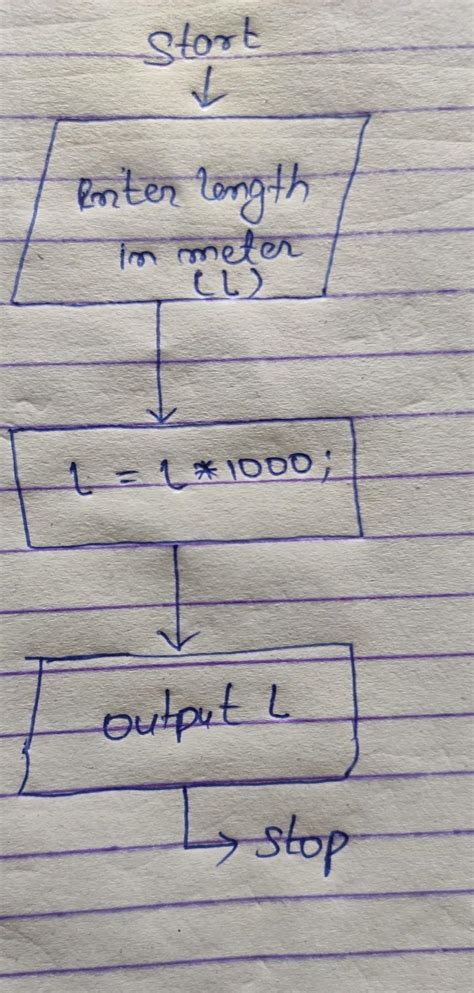 Start
Enter length
in meter
(l)
l = l * 1000;
output L
stop